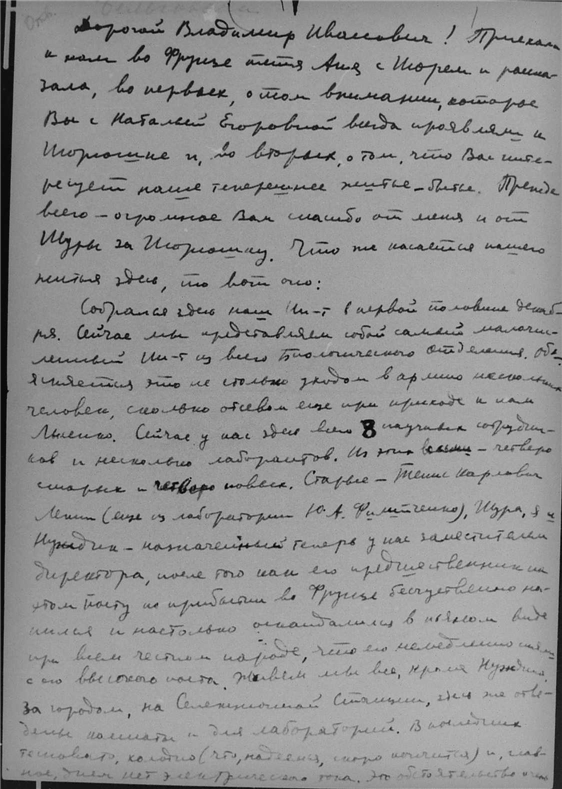 Дорогой Владимир Иванович! Приехала
к нам во Фрунзе тетя Аня с Юрем и расска-
зала, во первых, о том внимании, которое
Вы с Натальей Егоровной всегда проявляли к
Юрюшке и, во вторых, о том, что Вас инте-
ресует наше теперешнее житье-бытье. Прежде
всего - огромное Вам спасибо от меня и от
Шуры за Юрюшку. Что же касается нашего
житья здесь, то вот оно:
Собрался здесь наш Ин-т в первой половине декаб-
ря. Сейчас мы представляем собой самый малочис-
ленный Ин-т из всего Биологического отделения. Объ-
ясняется это не столько уходом в армию нескольких
человек, сколько отсевом еще при приходе к нам
Лысенко. Сейчас у нас здесь всего 8 научных сотрудни-
ков и несколько лаборантов. Из этих - четверо
старых и четверо новых. Старые - Тенис Карлович
Лепин (еще из лаборатории Ю. А. Филипченко), Шура, я и
Нуждин - назначенный теперь у нас заместителем
директора, после того как его предшественник на
этом посту по прибытии во Фрунзе бесчувственно на-
пился и настолько оскандалился в пьяном виде
при всем честном народе, что его немедленно сняли
с его высокого поста. Живем мы все, кроме Нуждина,
за городом, на Селекционной Станции, здесь же отве-
дены комнаты и для лабораторий. В последних
тесновато, холодно (что, надеемся, скоро кончится) и, глав-
ное, днем нет электрического тока. Это обстоятельство